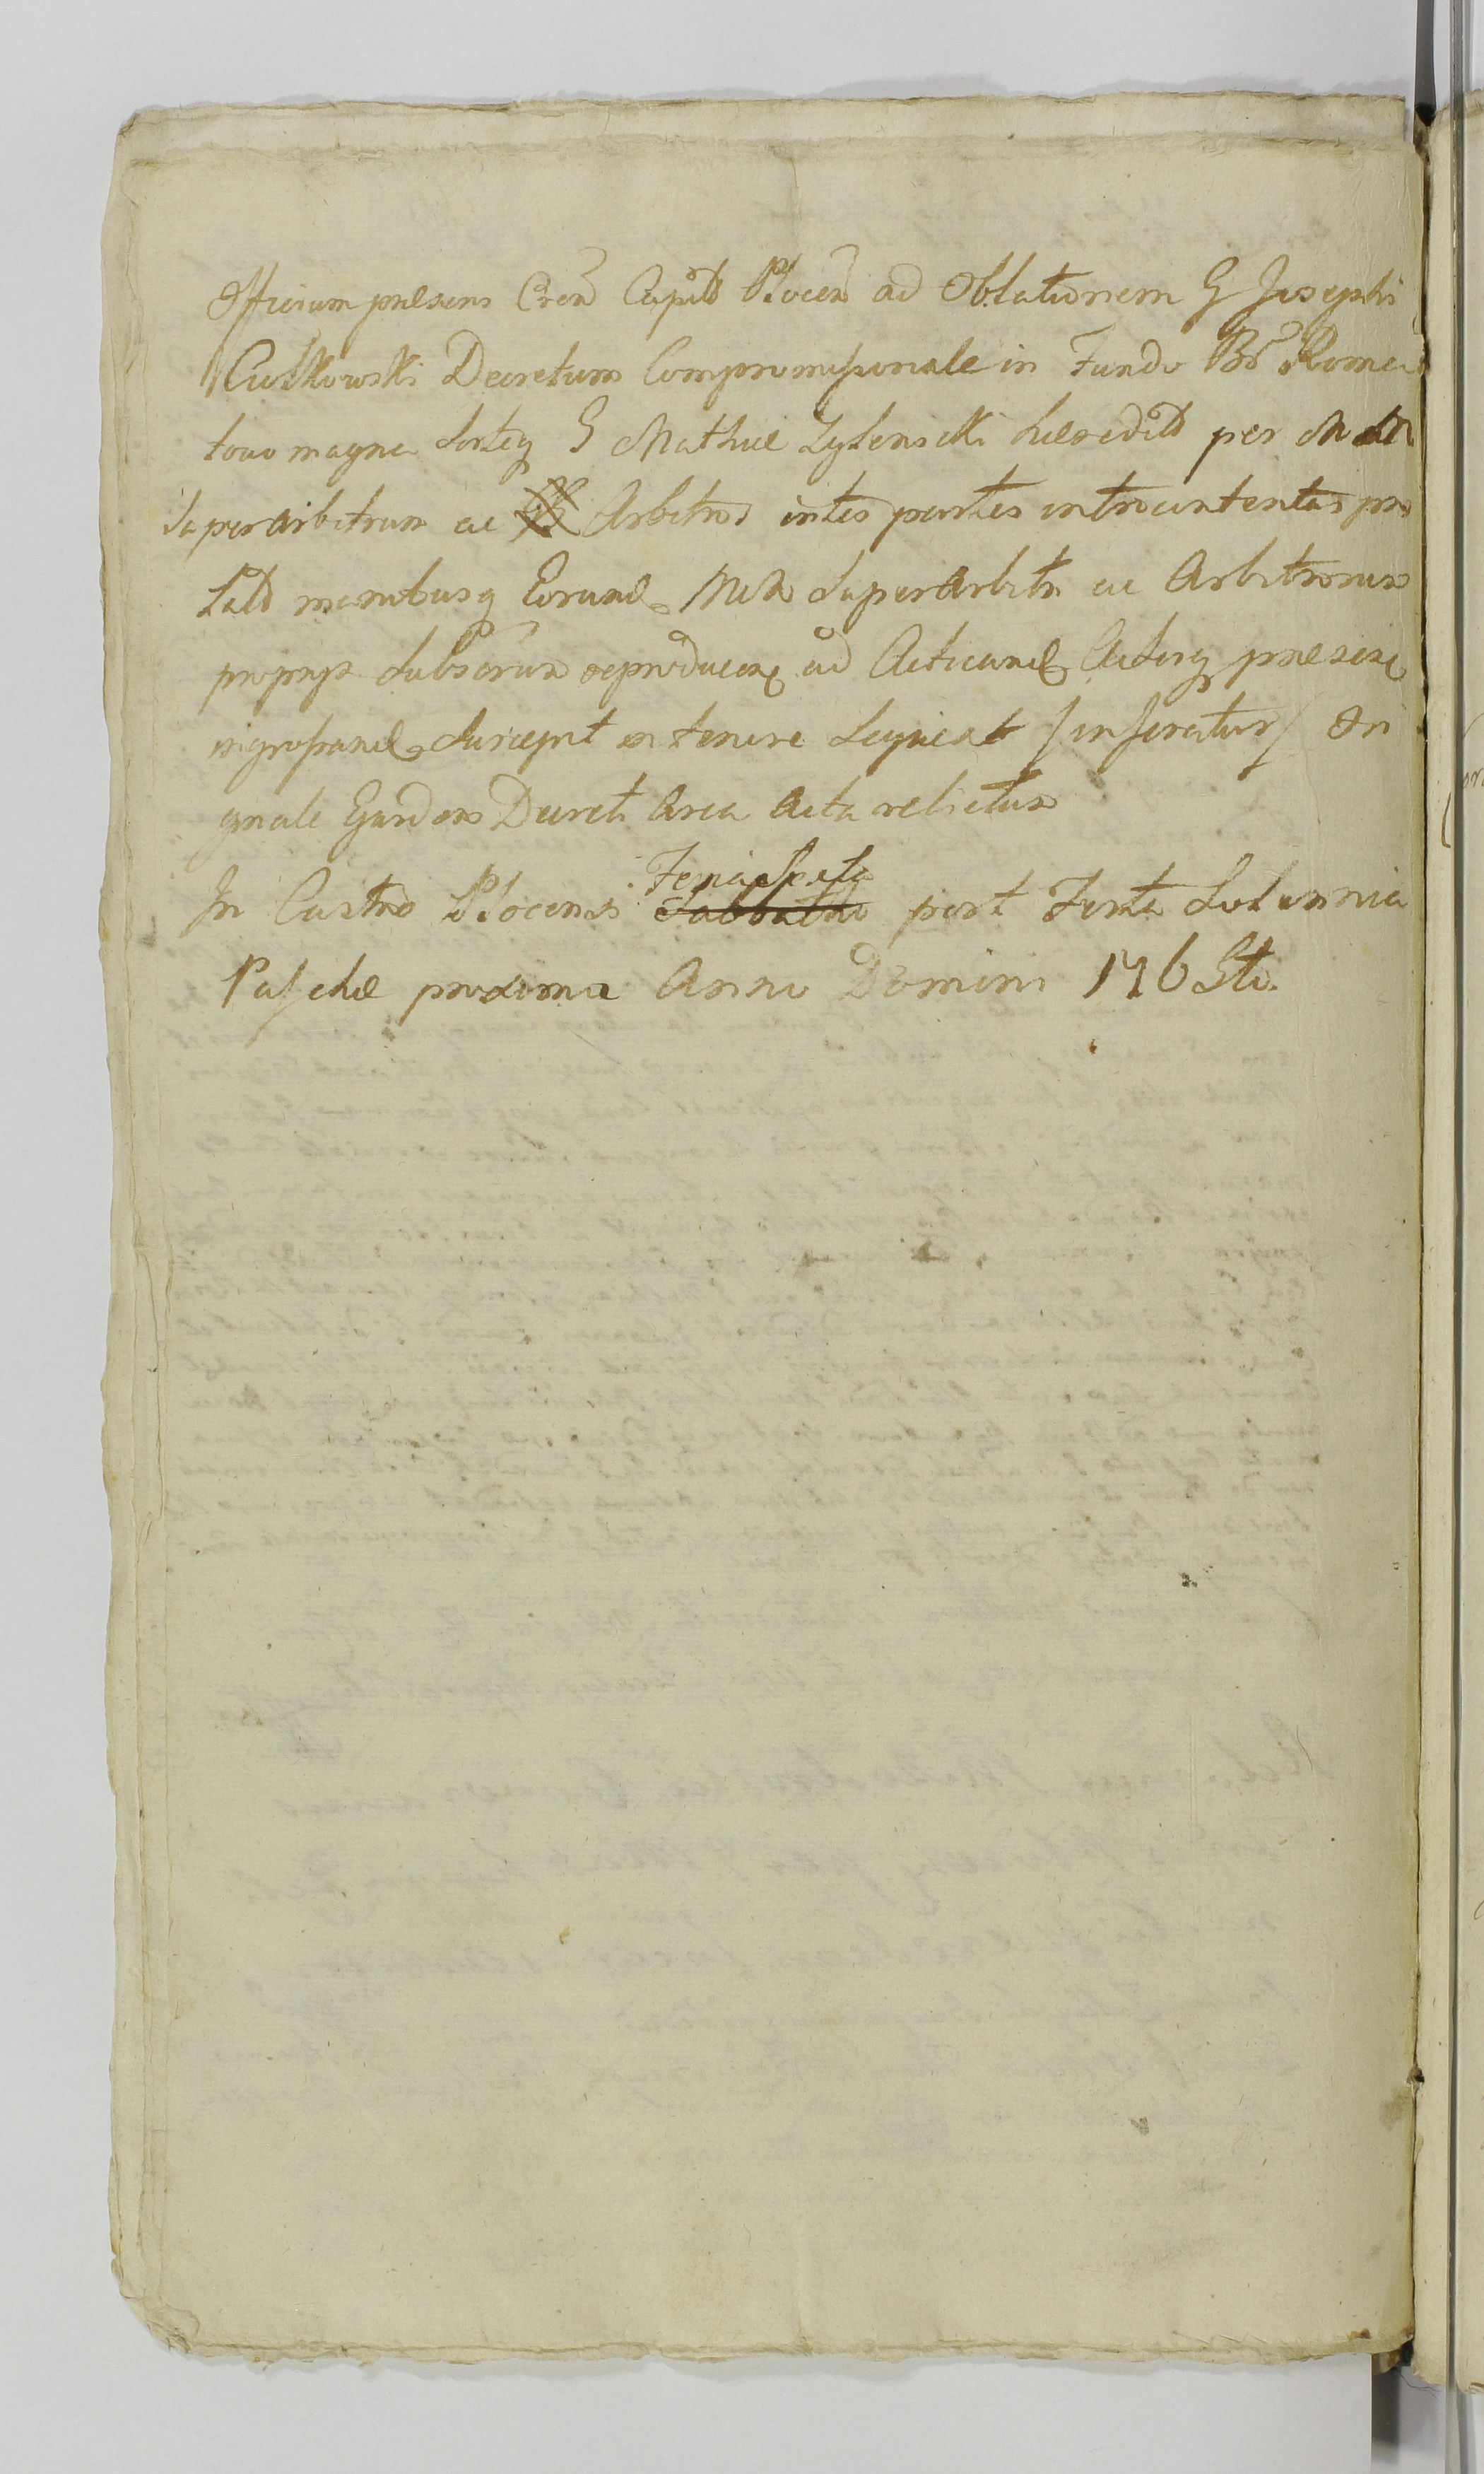 Officium præsens Cren Capit Plocen ad Oblationem G Josephi
Rutkowski Decretum Compromissionale in Fundo Br Rome
towo magna Sorteq G Mathiæ Zylenscki hæredit per M M
Superarbitrum ac Arbitros inter partes introcontentas pro
Lat manibusq Eorund M M Superarbitri ac Arbitrorum
proprys Subscrum reproducen ad Acticand Actisq præsen
ingrossand Suscepit et tenore Sequent /inseratur/ Ori
ginale Ejusdem Decreti circa Acta relictum
In Castro Plocensi Sabbatho Feria Sexta post Festa Solennia
Paschæ proxima Anno Domini 176